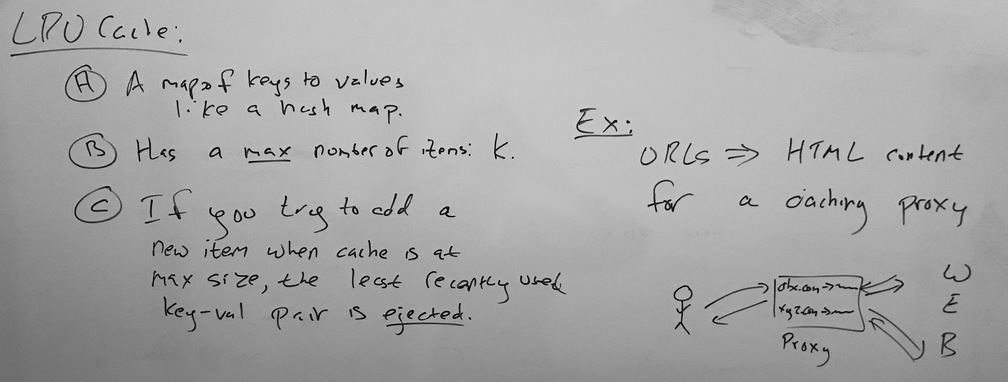 LRU Cache:
A A map of keys to values
like a hash map.
B Has a max number of items: k.
C If you try to add a
new item when cache is at
max size, the least recently used
key-val pair is ejected.
Ex:
URLs ⇒ HTML content
for a caching proxy
abc.com→
xyz.com→
Proxy
W
E
B